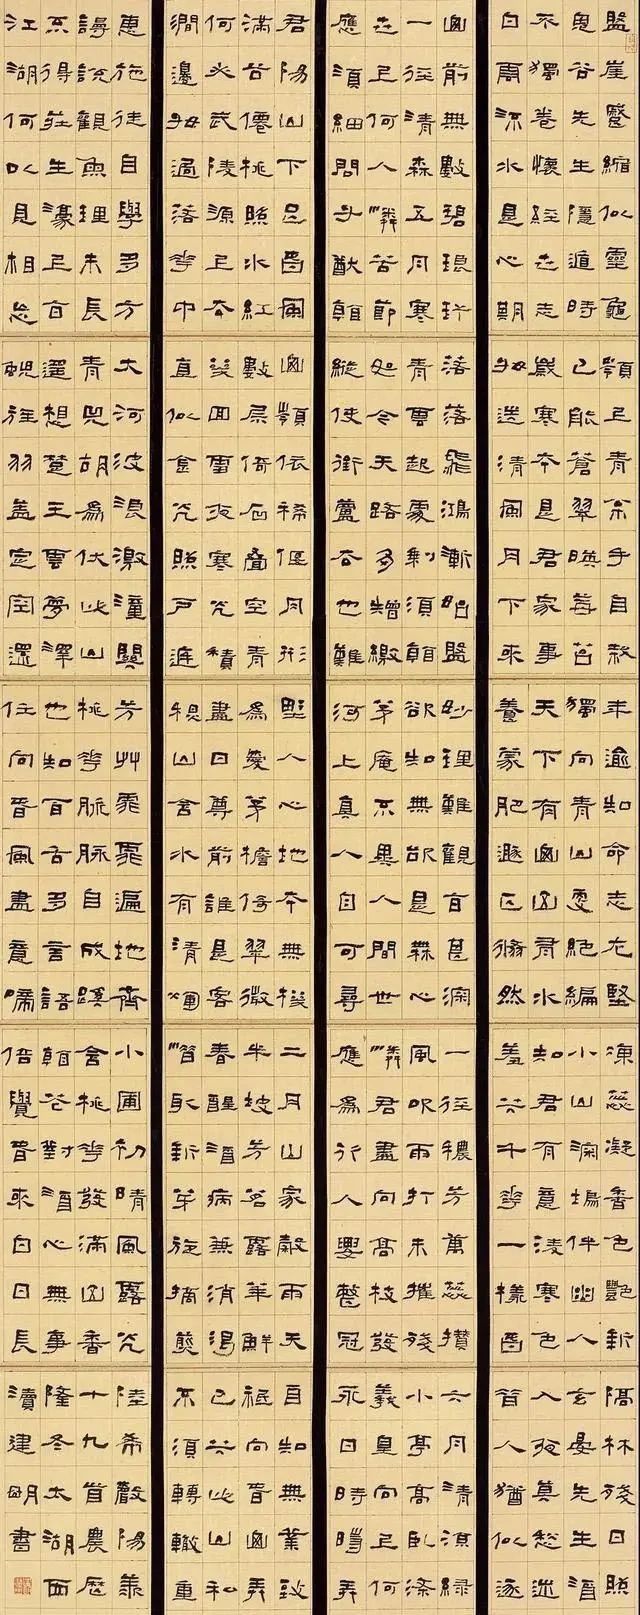 盤崖蹙縮似靈龜
鬼谷先生隱遁時
不獨卷懷經世志
白雲流水是心期
山前無數碧琅玕
一徑清森五月寒
世上何人憐苦節
應須細問子猷看
君陽山下足春風
滿谷仙桃照水紅
何必武陵源上去
澗邊好過落花中
惠施徒自學多方
謾說觀魚理未長
不得莊生濠上旨
江湖何以見相忘
嶺上青松手自栽
已能蒼翠映莓苔
歲寒本是君家事
好送清風月下來
落落飛鴻漸始盤
青雲起處剩須看
如今天路多矰繳
縱使銜蘆去也難
山嶺依稀偃月形
數層倚石疊空青
幾回雪夜寒光積
直似金光照戶庭
大河波浪激潼關
青兕胡為伏此山
遙想楚王雲夢澤
蜺旌羽蓋定空還
年逾知命志尤堅
獨向青山更絕編
天下有山山有水
養蒙肥遯正翛然
妙理難觀旨甚深
欲知無欲是無心
茅庵不異人間世
河上真人自可尋
野人心地本無機
為愛茅檐倚翠微
盡日尊前誰是客
秖山含水有清暉
芳草霏霏遍地齊
桃花脈脈自成蹊
也知百舌多言語
任向春風盡意啼
凍蕊凝香色艷新
小山深塢伴幽人
知君有意凌寒色
羞共千花一樣春
一徑穠芳萬蕊攢
風吹雨打未摧殘
憐君盡向高枝發
應為行人要整冠
二月山家穀雨天
半坡芳茗露華鮮
春醒酒病兼消渴
惜取新芽旋摘煎
小圃初晴風露光
含桃花發滿山香
看花對酒心無事
倍覺春來白日長
隔林殘日照
玄晏先生酒
入夜莫愁迷
昔人猶似逐
六月清涼綠
小亭高臥滌
羲皇向上何
永日時時弄
自知無業致
祗向春山弄
已共此山私
不須轉轍重
陸希聲陽羨
十九首農歷
隆冬太湖西
瀆建明書